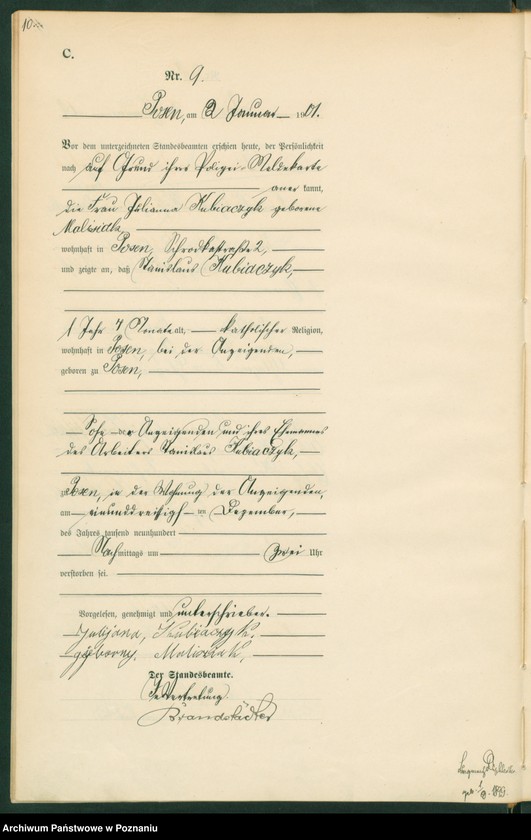 10
C.
Nr. 9.
Posen, am 2 Januar 1901.
Vor dem unterzeichneten Standesbeamten erschien heute, der Persönlichkeit
nach auf Grund ihrer Polizei-Meldekarte
aner kannt,
die Frau Julianna Kubiaczyk geborene
Malisiak,
wohnhaft in Posen, Schrodkastraße 2,
und zeigte an, daß Stanislaus Kubiaczyk,
1 Jahr 4 Monate alt, katholischer Religion,
wohnhaft in Posen, bei der Anzeigenden,
geboren zu Posen,
Sohn der Anzeigenden und ihres Ehemannes
des Arbeiters Stanislaus Kubiaczyk,
zu Posen, in der Wohnung der Anzeigenden,
am einunddreißigsten Dezember,
des Jahres tausend neunhundert
Nachmittags um zwei Uhr
verstorben sei.
Vorgelesen, genehmigt und unterschrieben.
Juljana, Kubiaczyk.
geborny. Malisiak,
Der Standesbeamte.
In Vertretung
Brandstädter
Archiwum Państwowe w Poznaniu